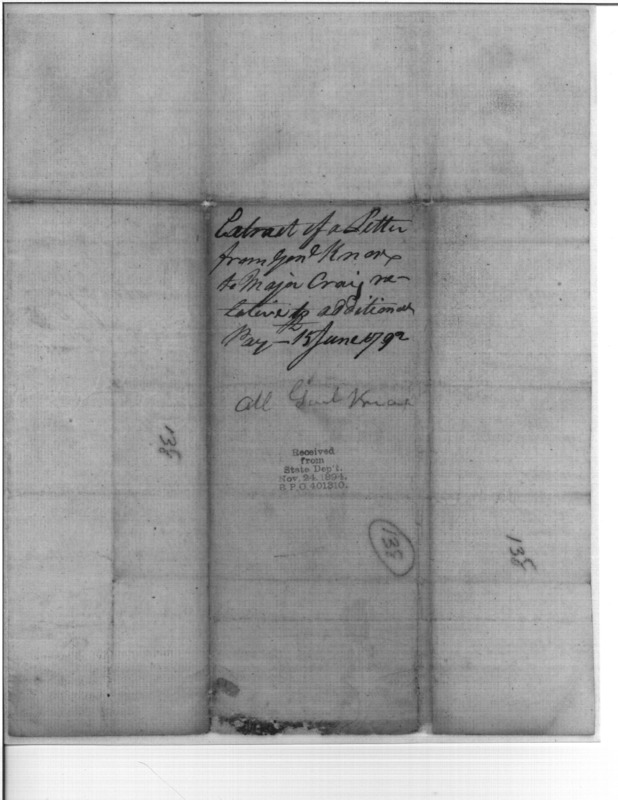 Extract of a Letter
from Genl Knox
to Major Craig re-
lative to additional
Pay - 15th June 1792
Genl Knox
Received
from
State Dep't.
Nov. 24, 1894.
R.P.O. 401310.
138
138
138